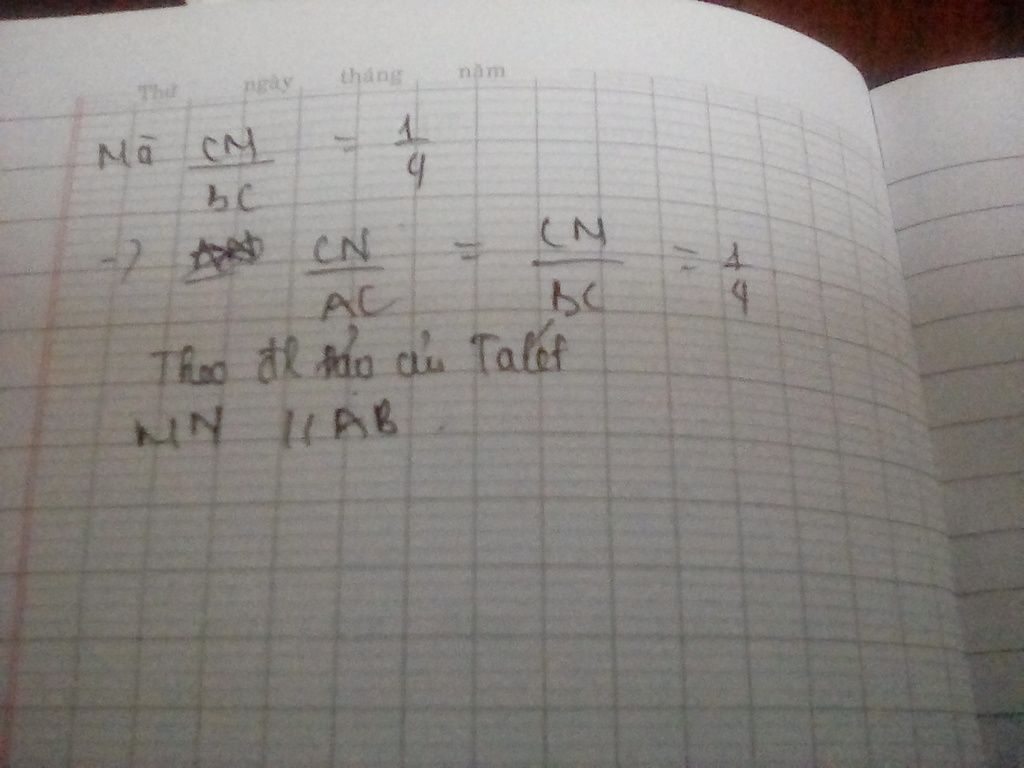 Thứ ngày tháng năm
Mà CM/BC = 1/4
-> CN/AC = CM/BC = 1/4
Theo đl đảo của Talét
MN // AB